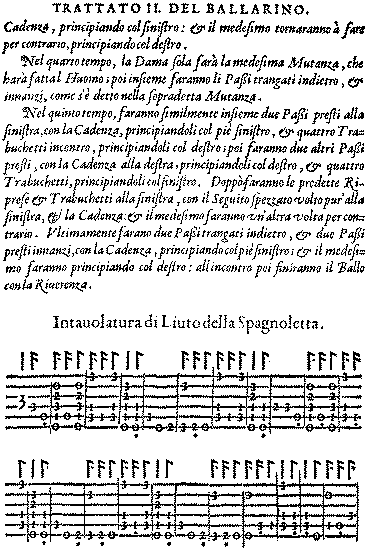 TRATTATO II. DEL BALLARINO.
Cadenza, principiando col sinistro: & il medesimo tornaranno à fare
per contrario, principiando col destro.
Nel quarto tempo, la Dama sola farà la medesima Mutanza, che
harà fatta l'Huomo; poi insieme faranno li Passi trangati indietro, &
innanzi, come s'è detto nella sopradetta Mutanza.
Nel quinto tempo, faranno similmente insieme due Passi presti alla
sinistra, con la Cadenza, principiandoli col piè sinistro, & quattro Tra-
buchetti incontro, principiandoli col destro: poi faranno due altri Passi
presti, con la Cadenza alla destra, principiandoli col destro, & quattro
Trabuchetti, principiandoli col sinistro. Doppò faranno le predette Ri-
prese & Trabuchetti alla sinistra, con il Seguito spezzato volto pur' alla
sinistra, & la Cadenza: & il medesimo faranno vn'altra volta per con-
trario. Vltimamente farano due Passi trangati indietro, & due Passi
presti innanzi, con la Cadenza, principiando col piè sinistro; & il medesi-
mo faranno principiando col destro: all'incontro poi finiranno il Ballo
con la Riuerenza.
Intauolatura di Liuto della Spagnoletta.